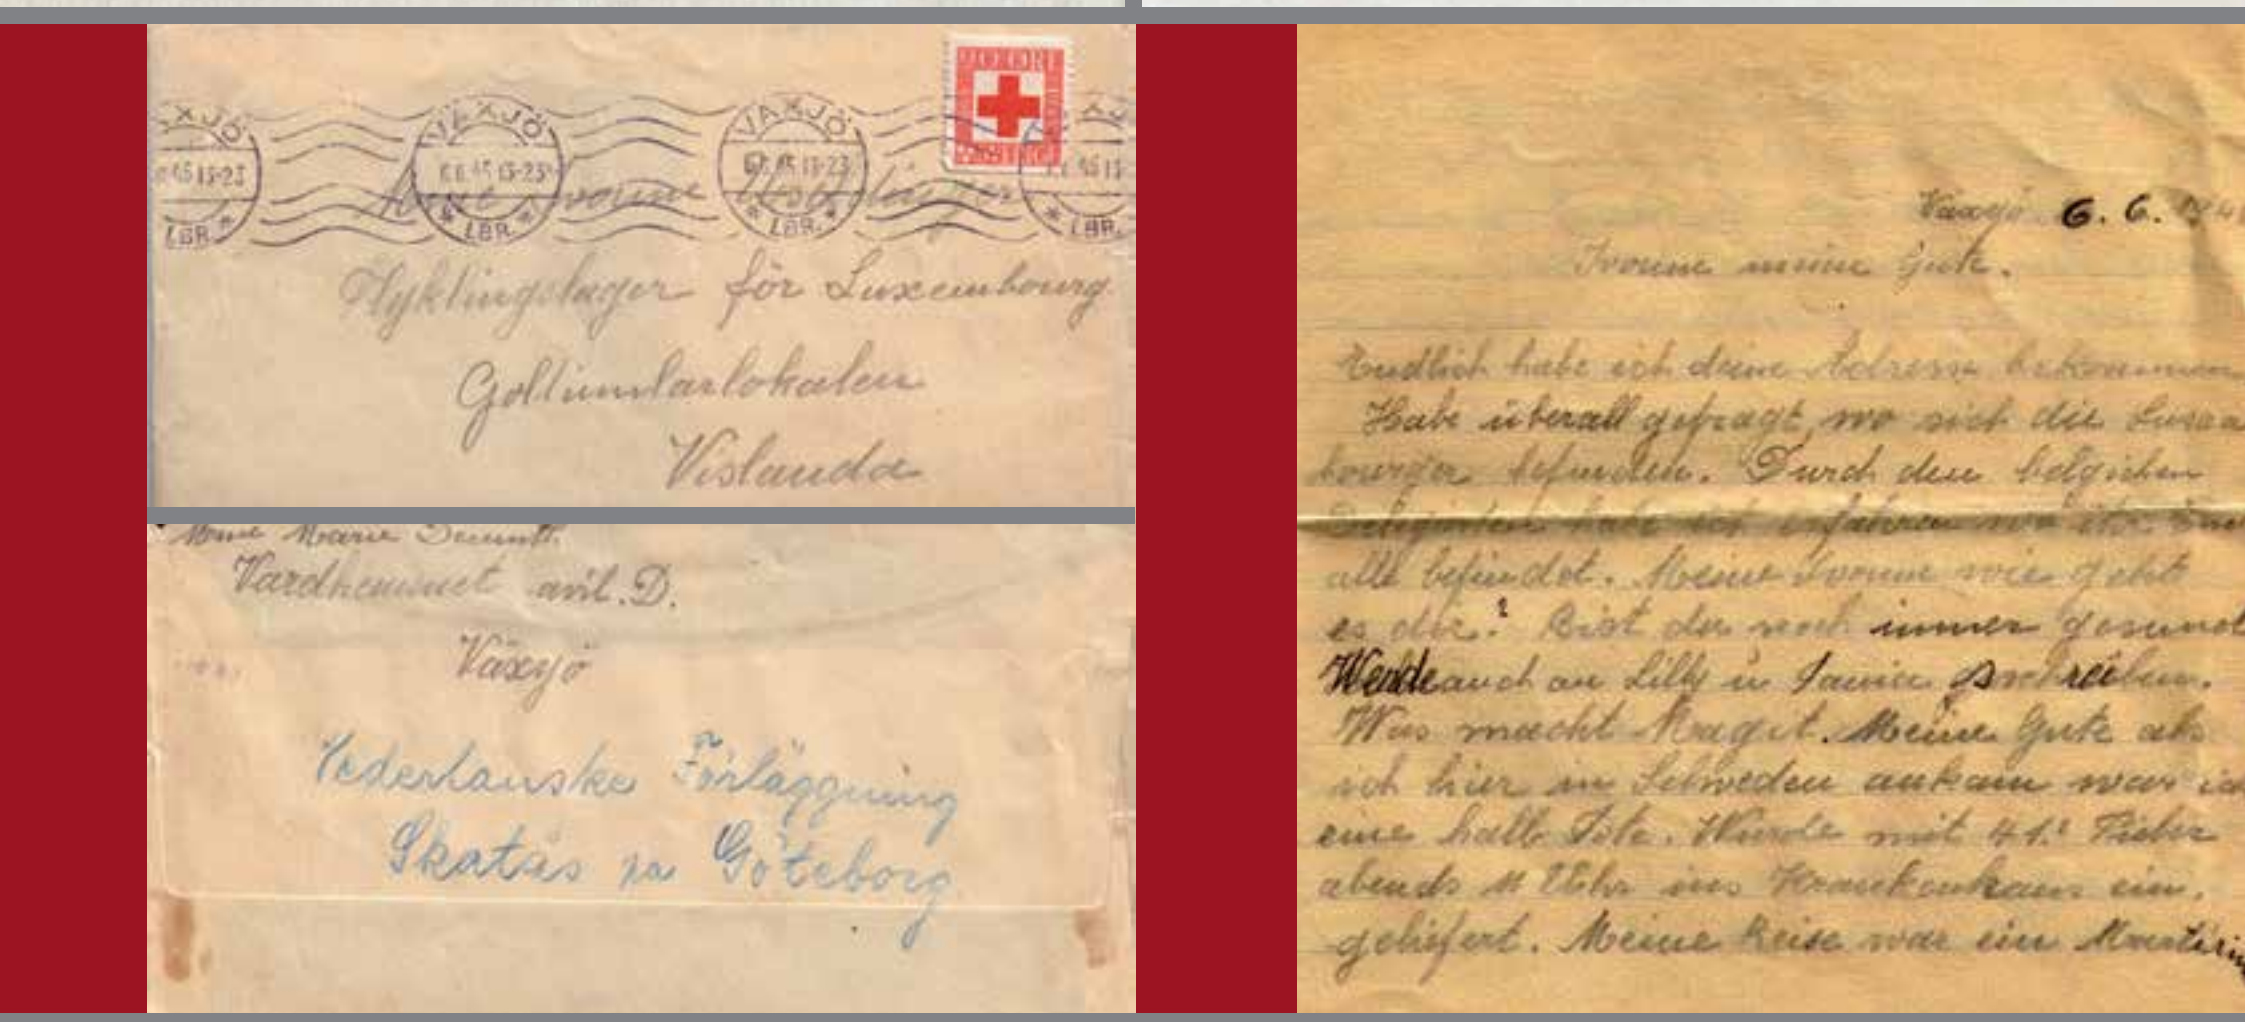 VÄXJÖ
6.6.45 13-23
LBR.
VÄXJÖ
6.6.45 13-23
LBR.
Mme Ivonne
Flyktingslager för Luxembourg
Gottemplarlokalen
Vislanda
Mme Marie
Vardhemmet avil. D.
Växsjö
Nederlanske Förläggning
Skatås pa Göteborg
Växsjö 6. 6. 194
Ivonne meine Gute.
Endlich habe ich deine Adresse bekommen
Habe überall gefragt wo sich die
bourger befinden. Durch den belgichen
habe ich erfahren wo ihr
alle befindet. Meine Ivonne wie geht
es dir? Bist du noch immer gesund
Werde auch an Lilly u schreiben.
Was macht Magit. Meine Gute als
ich hier in Schweden ankam war ich
eine halb Tote. Wurde mit 41° Fieber
abends 11 Uhr ins Krankenhaus ein.
geliefert. Meine Reise war ein